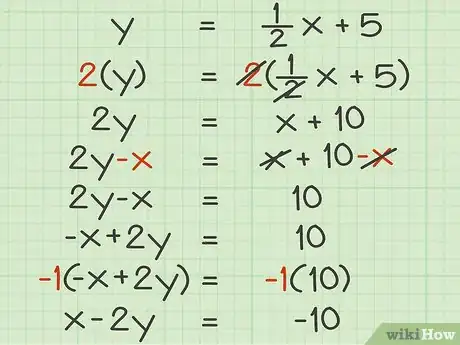 y = 1/2 x + 5
2(y) = 2(1/2 x + 5)
2y = x + 10
2y-x = x + 10-x
2y-x = 10
-x+2y = 10
-1(-x+2y) = -1(10)
x-2y = -10
wikiHow